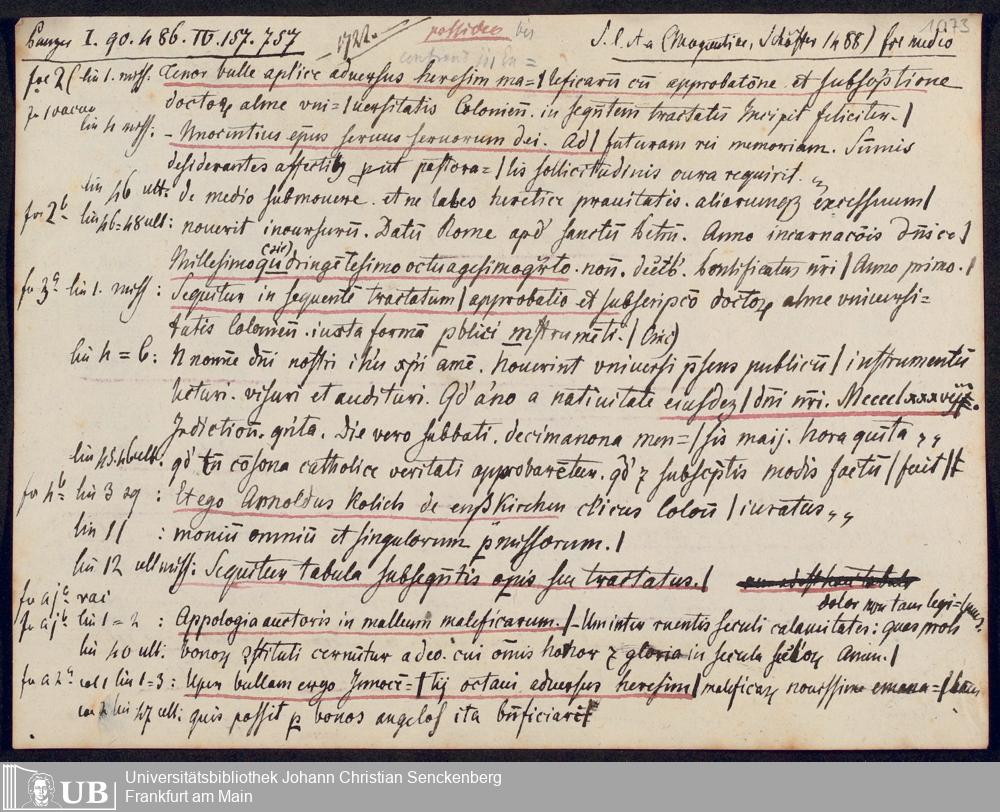 Panzer I. 90. 486. IV. 157. 757 1722. possideo bis S. l. et a (Moguntiae, Schöffer 1488) fre medio 1073
fre 2 lin 1. miss: Tenor bulle aplice adversus heresim ma=/leficarū cū approbatōne et subscrōptione
doctoꝝ alme vni=/uersitatis Colonieñ. in sequētem tractatū Incipit feliciter./
lin 4 miss: - Innocentius ep̄us seruus seruorum dei. Ad/ futuram rei memoriam. Sūmis
desiderantes affectibꝫ put pastora=/lis sollicitudinis cura requirit.
fre 2b lin 46 ult: de medio submouere. et ne labes heretice prauitatis. aliorumqꝫ excessuum/
lin 46=48 ult: nouerit incursurū. Datū Rome apd' sanctū Petrū. Anno incarnacōis dn̄ice/
(sic)
Millesimoquadringētesimo octuagesimoqrto. non. decēb. Pontificatus nr̄i / Anno primo./
fre 3a lin 1. miss: Sequitur in sequentē tractatum / approbatio et subscripcō doctoꝝ alme vniuersi=
tatis Colonieñ. iuxta formā publici instrumēti./ (sic)
lin 4=6: N nomīe dn̄i nostri ihū xp̄i amē. Nouerint vniuersi p̄sens publicū / instrumentū
lecturi. visuri et audituri. Qd' āno a natiuitate eiusdeꝫ / dn̄i nr̄i. Mcccclxxxvij.
Indictioñ. qnta. Die vero sabbati. decimanona men=/sis maij. hora quīta
lin 45.46 ult: qd' tn̄ cōsona catholice veritati approbaretur. qd' ꝛ subscptis modis factū / fuit /
fre 4b lin 3 sq : Et ego Arnoldus Kolich de eusskirchen clicus Coloñ / iuratus
lin 11 : moniū omniū et singulorum p̄missorum./
lin 12 ult miss: Sequitur tabula subseqntis opis seu tractatus./
fre aja vac
fre ajb lin 1=2 : Appologia auctoris in malleum maleficarum./ - Um inter ruentis seculi calamitates: quas proh dolor non tam legi=/mus
lin 40 ult. bonoꝝ 9stituti cernūtur adeo. cui om̄is honor ꝛ gloria in secula seculoꝝ Amen./
fre a2a col 1 lin 1=3: Uper bullam ergo Innocē=/tij octaui aduersus heresim / maleficaꝝ nouissime emana=/tam
col 2 lin 47 ult: quis possit p bonos angelos ita bn̄ficiari
UB Universitätsbibliothek Johann Christian Senckenberg
Frankfurt am Main